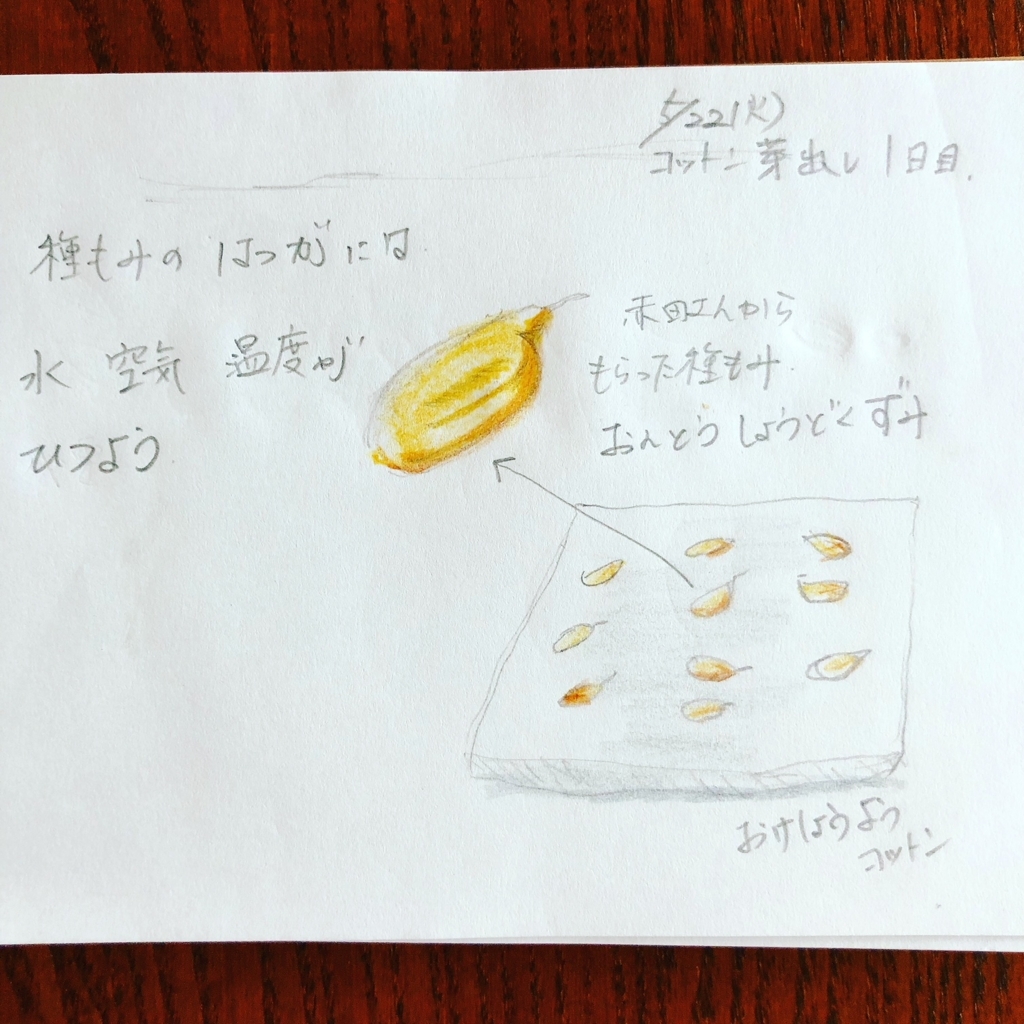 5/22(火)
コットン芽出し 1日目.
種もみの はつがには
水 空気 温度が
ひつよう
赤田さんから
もらった種もみ
おんとう しょうどくずみ
おけしょうよう
コットン